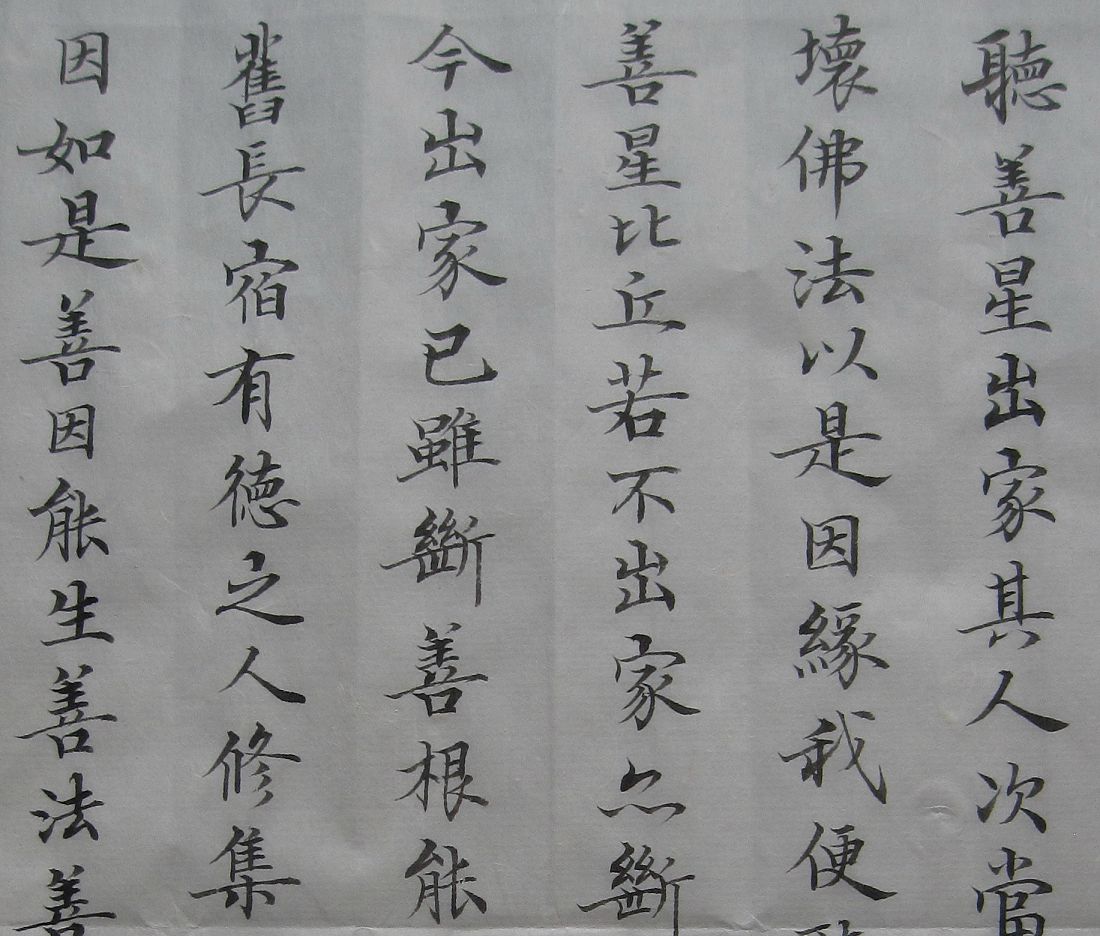 聽善星出家其人次當
壞佛法以是因緣我便
善星比丘若不出家亦斷
今出家已雖斷善根能
舊長宿有德之人修集
因如是善因能生善法善